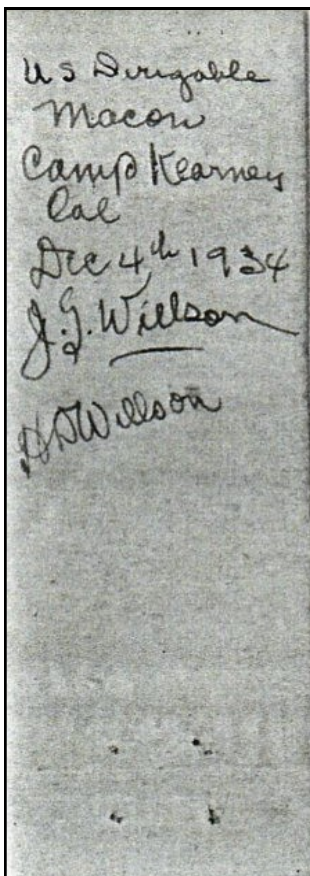 US Dirigable
Macon
Camp Kearney
Cal
Dec 4th 1934
J.G. Willson
HD Willson